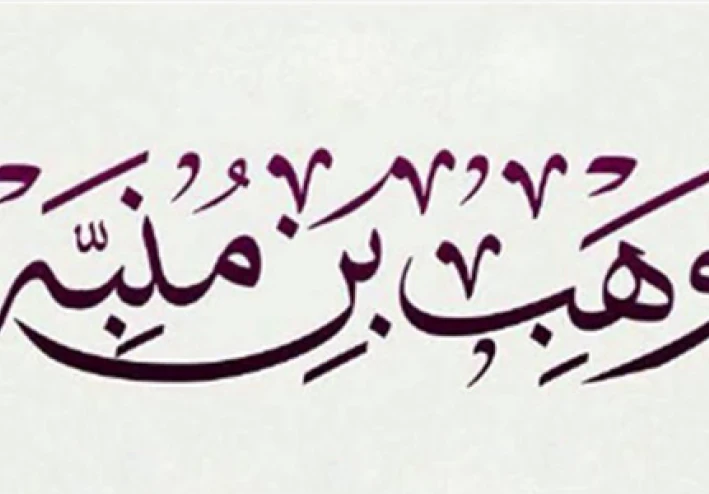 وهب بن منبه